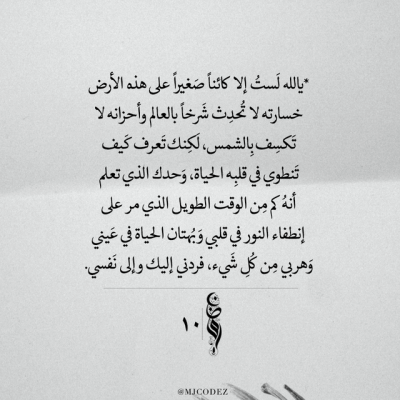 *يالله لَستُ إلا كائناً صَغيراً على هذه الأرض
خسارته لا تُحدِث شَرخاً بالعالم وأحزانه لا
تَكسِف بِالشمس، لَكِنك تَعرف كَيف
تَنطوي في قلبِه الحياة، وَحدك الذي تعلم
أنهُ كم مِن الوقت الطويل الذي مر على
إنطفاء النور في قلبي وَبُهتان الحياة في عَيني
وَهربي مِن كُلِ شَيء، فردني إليك وإلى نَفسي.
١٠
@MJCODEZ